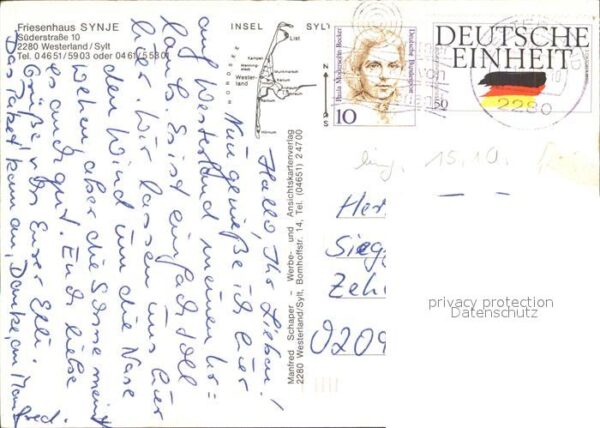 Friesenhaus SYNJE
Süderstraße 10
2280 Westerland / Sylt
Tel. 0 46 51 / 59 03 oder 04 61 / 5 53 01
INSEL SYLT
List
Kampen
Westerland
Keitum
Hörnum
N
S
Manfred Schaper – Werbe- und Ansichtskartenverlag
2280 Westerland/Sylt, Bomhoffstr. 14, Tel. (04651) 2 47 00
Hallo, Ihr Lieben!
Nun genieße ich hier
auf Westerland meinen Ur=
laub. Es ist einfach toll
hier. Wir lassen uns hier
den Wind um die Nase
wehen, aber die Sonne meint
es auch gut. Euch liebe
Grüße von Eurer Elli.
Das Paket kam an, Danke, an Manfred.
Paula Modersohn-Becker
Deutsche Bundespost
10
DEUTSCHE
EINHEIT
50
2280
15.10.
Her
Sieg
Zeh
0209
privacy protection
Datenschutz